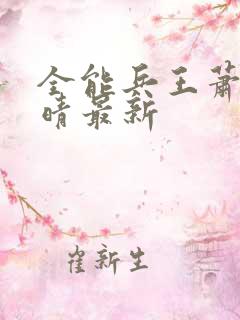 全能兵王萧
晴最新
崔新生